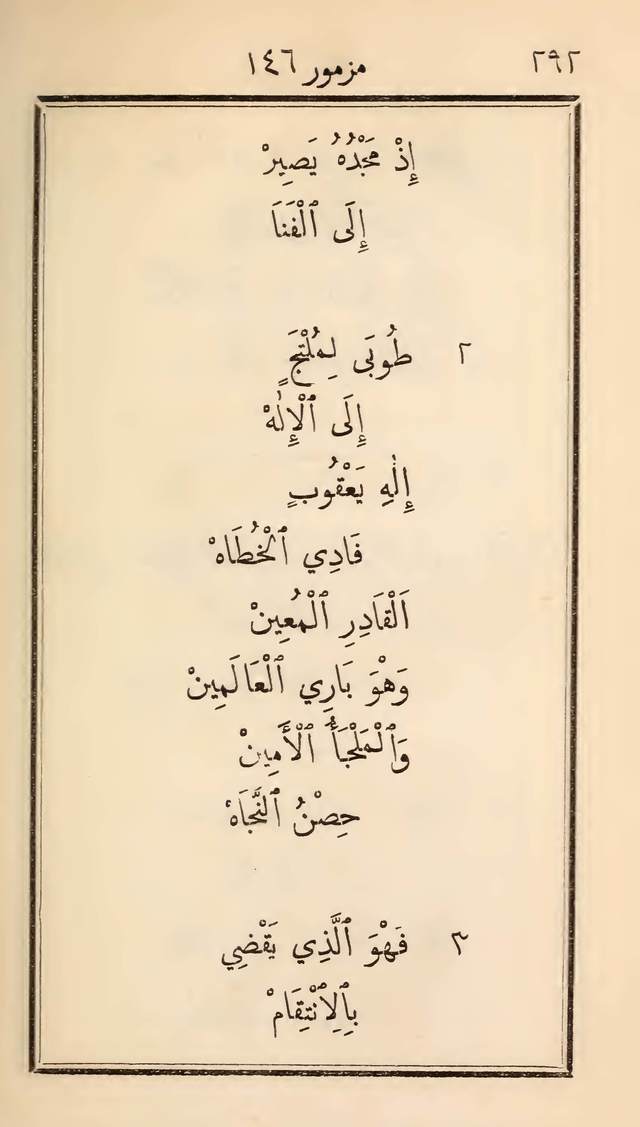 ٢٩٢ مزمور ١٤٦
إِذْ مَجْدُهُ يَصِيرْ
إِلَى ٱلْفَنَا
٢ طُوبَى لِمُلْتَجٍ
إِلَى ٱلْإِلٰهْ
إِلٰهِ يَعْقُوبٍ
فَادِي ٱلْخُطَاهْ
اَلْقَادِرِ ٱلْمُعِينْ
وَهْوَ بَارِي ٱلْعَالَمِينْ
وَٱلْمَلْجَأُ ٱلْأَمِينْ
حِصْنُ ٱلنَّجَاهْ
٣ فَهْوَ ٱلَّذِي يَقْضِي
بِٱلِٱنْتِقَامْ